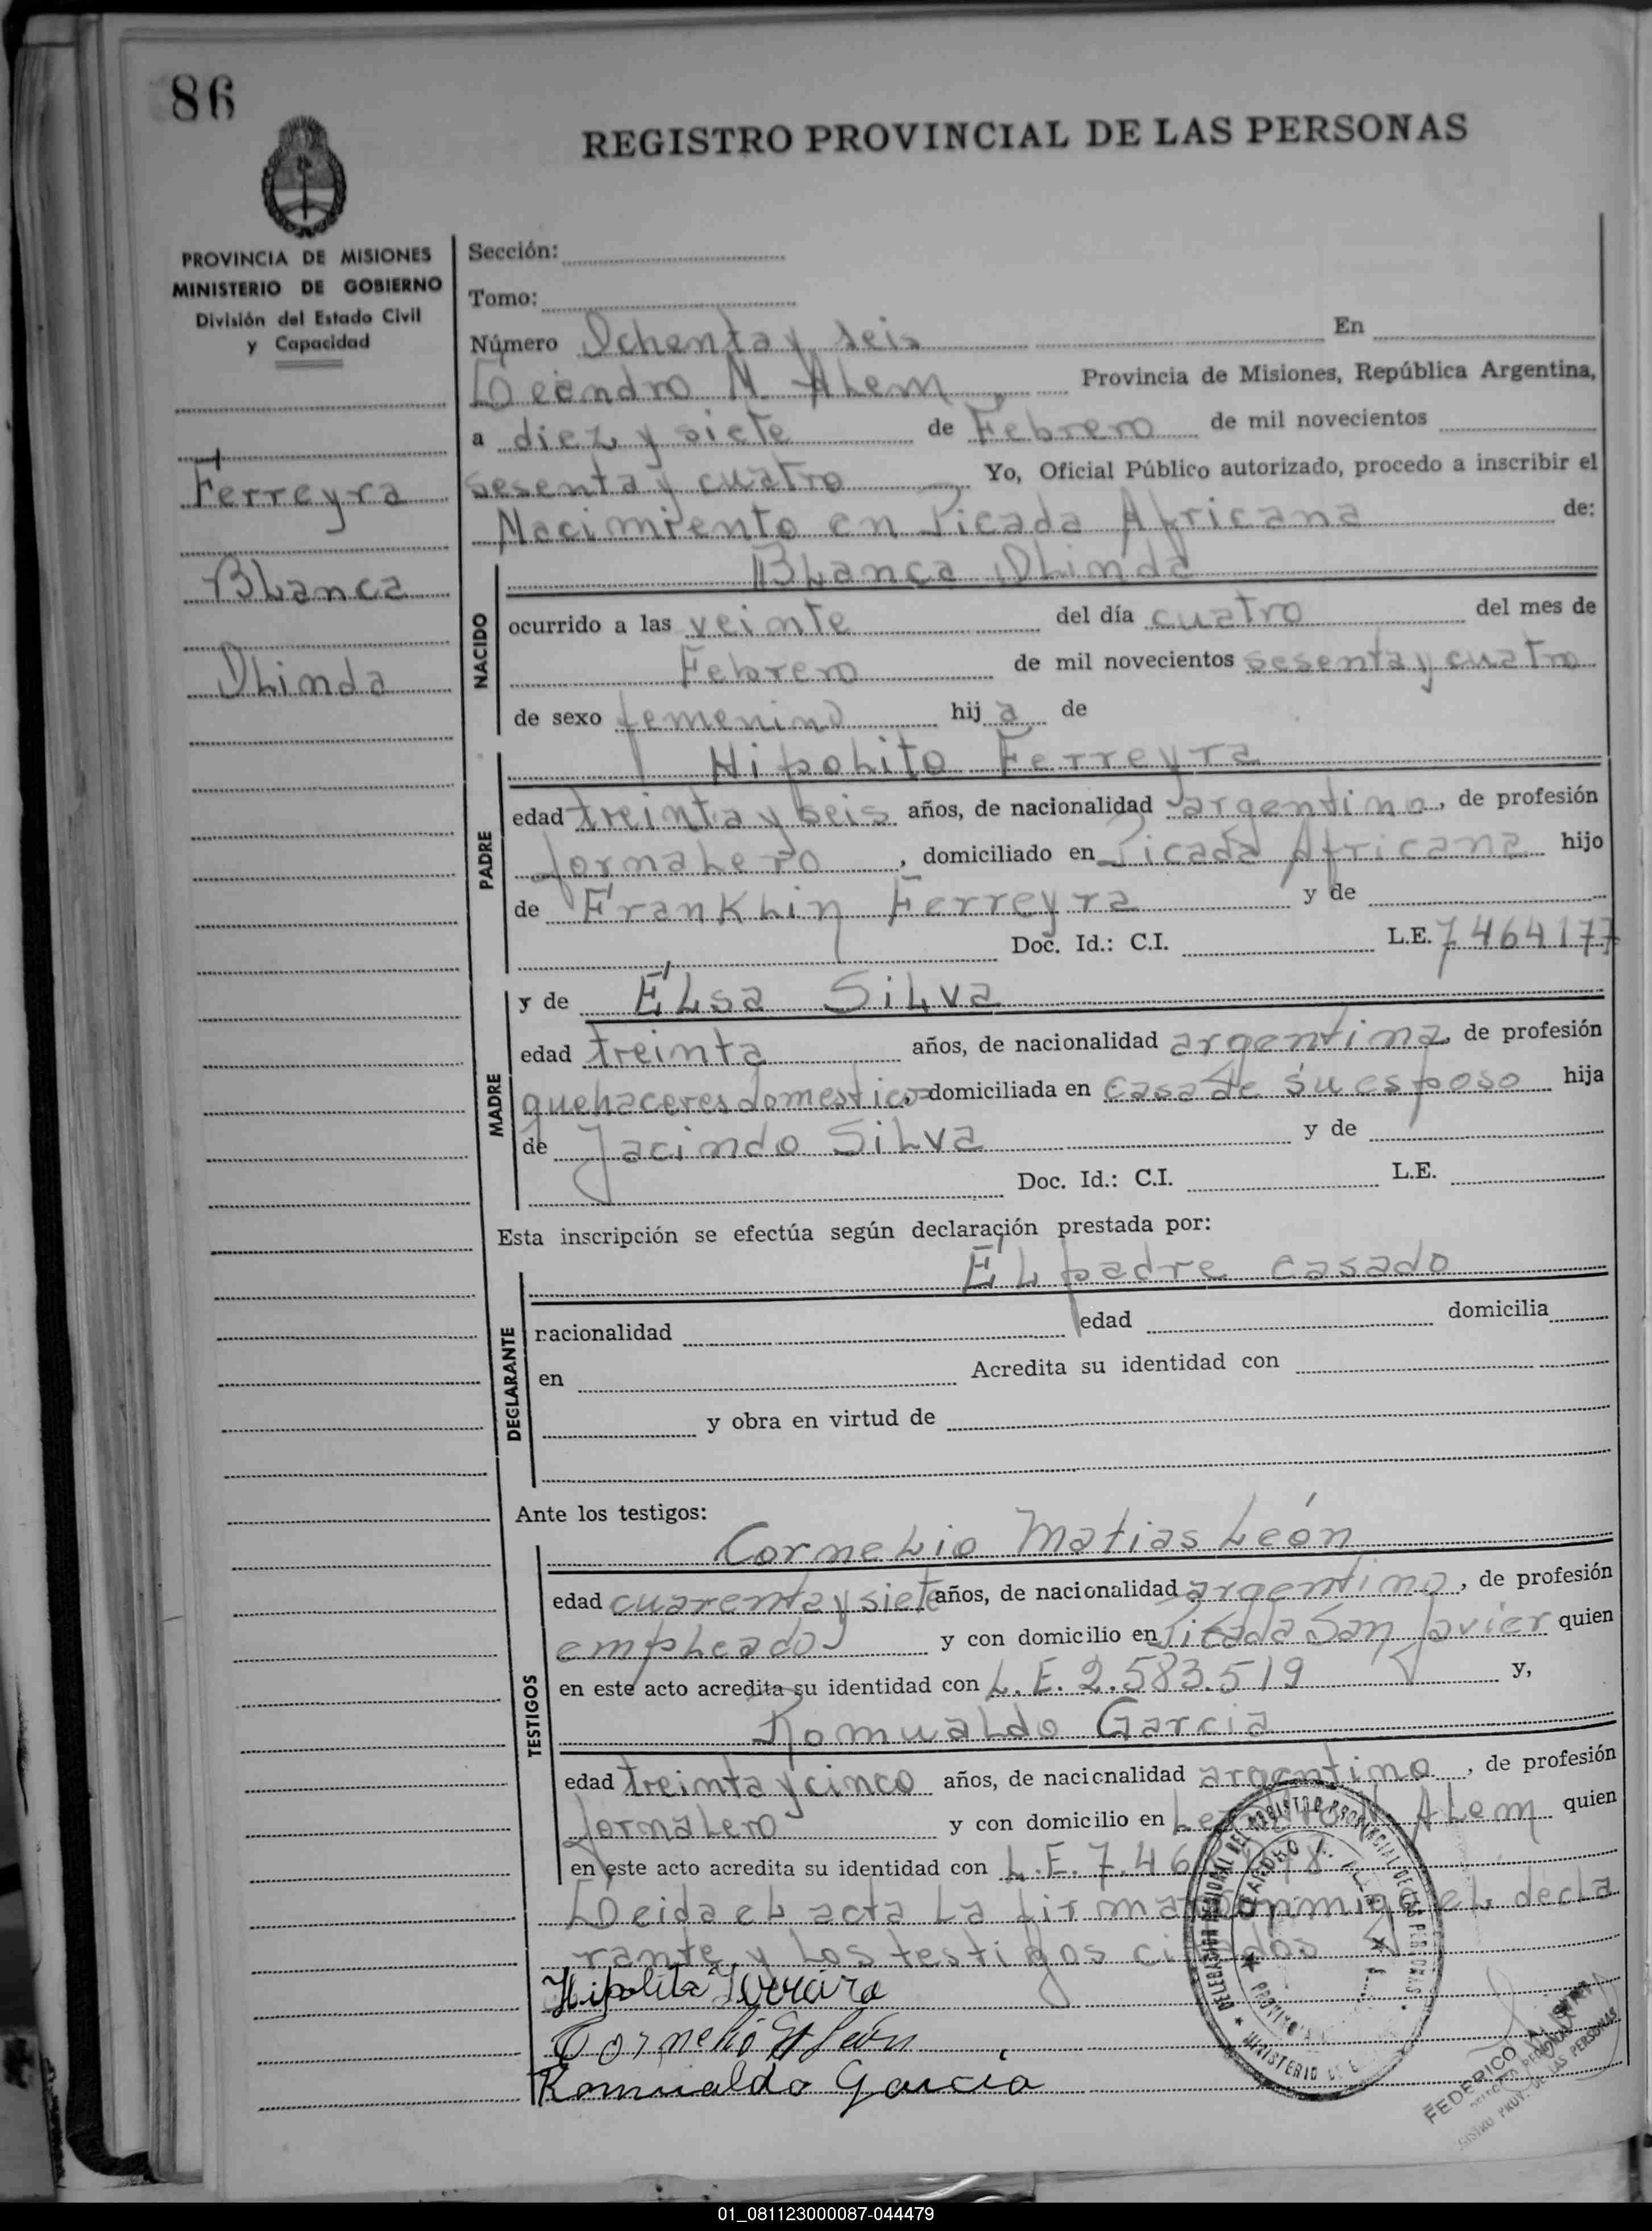 86
REGISTRO PROVINCIAL DE LAS PERSONAS
PROVINCIA DE MISIONES
MINISTERIO DE GOBIERNO
División del Estado Civil
y Capacidad
Ferreyra
Blanca
Olinda
Sección:
Tomo:
Número Ochenta y seis En
Leandro N. Alem Provincia de Misiones, República Argentina,
a diez y siete de Febrero de mil novecientos
sesenta y cuatro Yo, Oficial Público autorizado, procedo a inscribir el
Nacimiento en Picada Africana de:
NACIDO
Blanca Olinda
ocurrido a las veinte del día cuatro del mes de
Febrero de mil novecientos sesenta y cuatro
de sexo femenino hij a de
PADRE
Hipolito Ferreyra
edad treinta y seis años, de nacionalidad argentino, de profesión
Jornalero, domiciliado en Picada Africana hijo
de Franklin Ferreyra y de
Doc. Id.: C.I. L.E. 7464177
MADRE
y de Elsa Silva
edad treinta años, de nacionalidad argentina, de profesión
quehaceres domesticos, domiciliada en casa de su esposo hija
de Jacindo Silva y de
Doc. Id.: C.I. L.E.
Esta inscripción se efectúa según declaración prestada por:
DECLARANTE
El padre casado
racionalidad edad domicilia
en Acredita su identidad con
y obra en virtud de
Ante los testigos:
TESTIGOS
Cornelio Matias León
edad cuarenta y siete años, de nacionalidad argentino, de profesión
empleado y con domicilio en Picada San Javier quien
en este acto acredita su identidad con L.E. 2.583.519 y,
Romualdo Garcia
edad treinta y cinco años, de nacionalidad argentino, de profesión
Jornalero y con domicilio en Leandro N. Alem quien
en este acto acredita su identidad con L.E. 7.46
Leida el acta la firman conmigo el decla
rante y los testigos citados
Hipolito Ferreira
Cornelio M León
Romualdo Garcia
DELEGACION REGIONAL DEL REGISTRO PROVINCIAL DE LAS PERSONAS
LEANDRO N. ALEM
PROVINCIA
MINISTERIO DE
FEDERICO
PROV. DE LAS PERSONAS
01_081123000087-044479